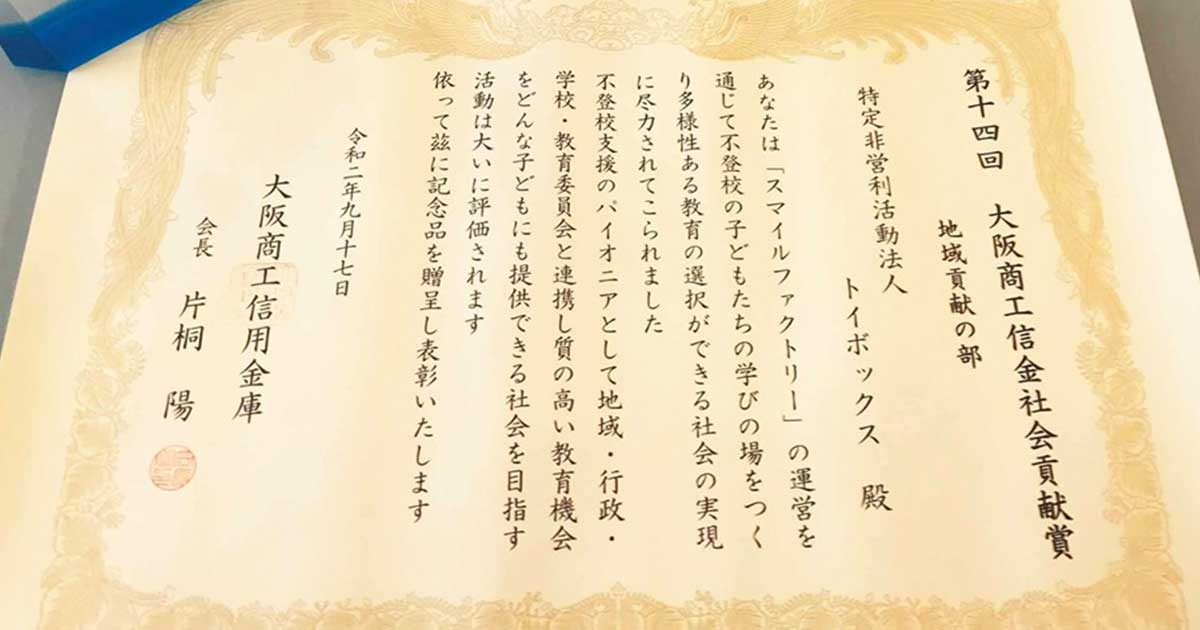 第十四回 大阪商工信金社会貢献賞
地域貢献の部
特定非営利活動法人
トイボックス 殿
あなたは「スマイルファクトリー」の運営を
通じて不登校の子どもたちの学びの場をつく
り多様性ある教育の選択ができる社会の実現
に尽力されてこられました
不登校支援のパイオニアとして地域・行政・
学校・教育委員会と連携し質の高い教育機会
をどんな子どもにも提供できる社会を目指す
活動は大いに評価されます
依って茲に記念品を贈呈し表彰いたします
令和二年九月十七日
大阪商工信用金庫
会長 片桐 陽